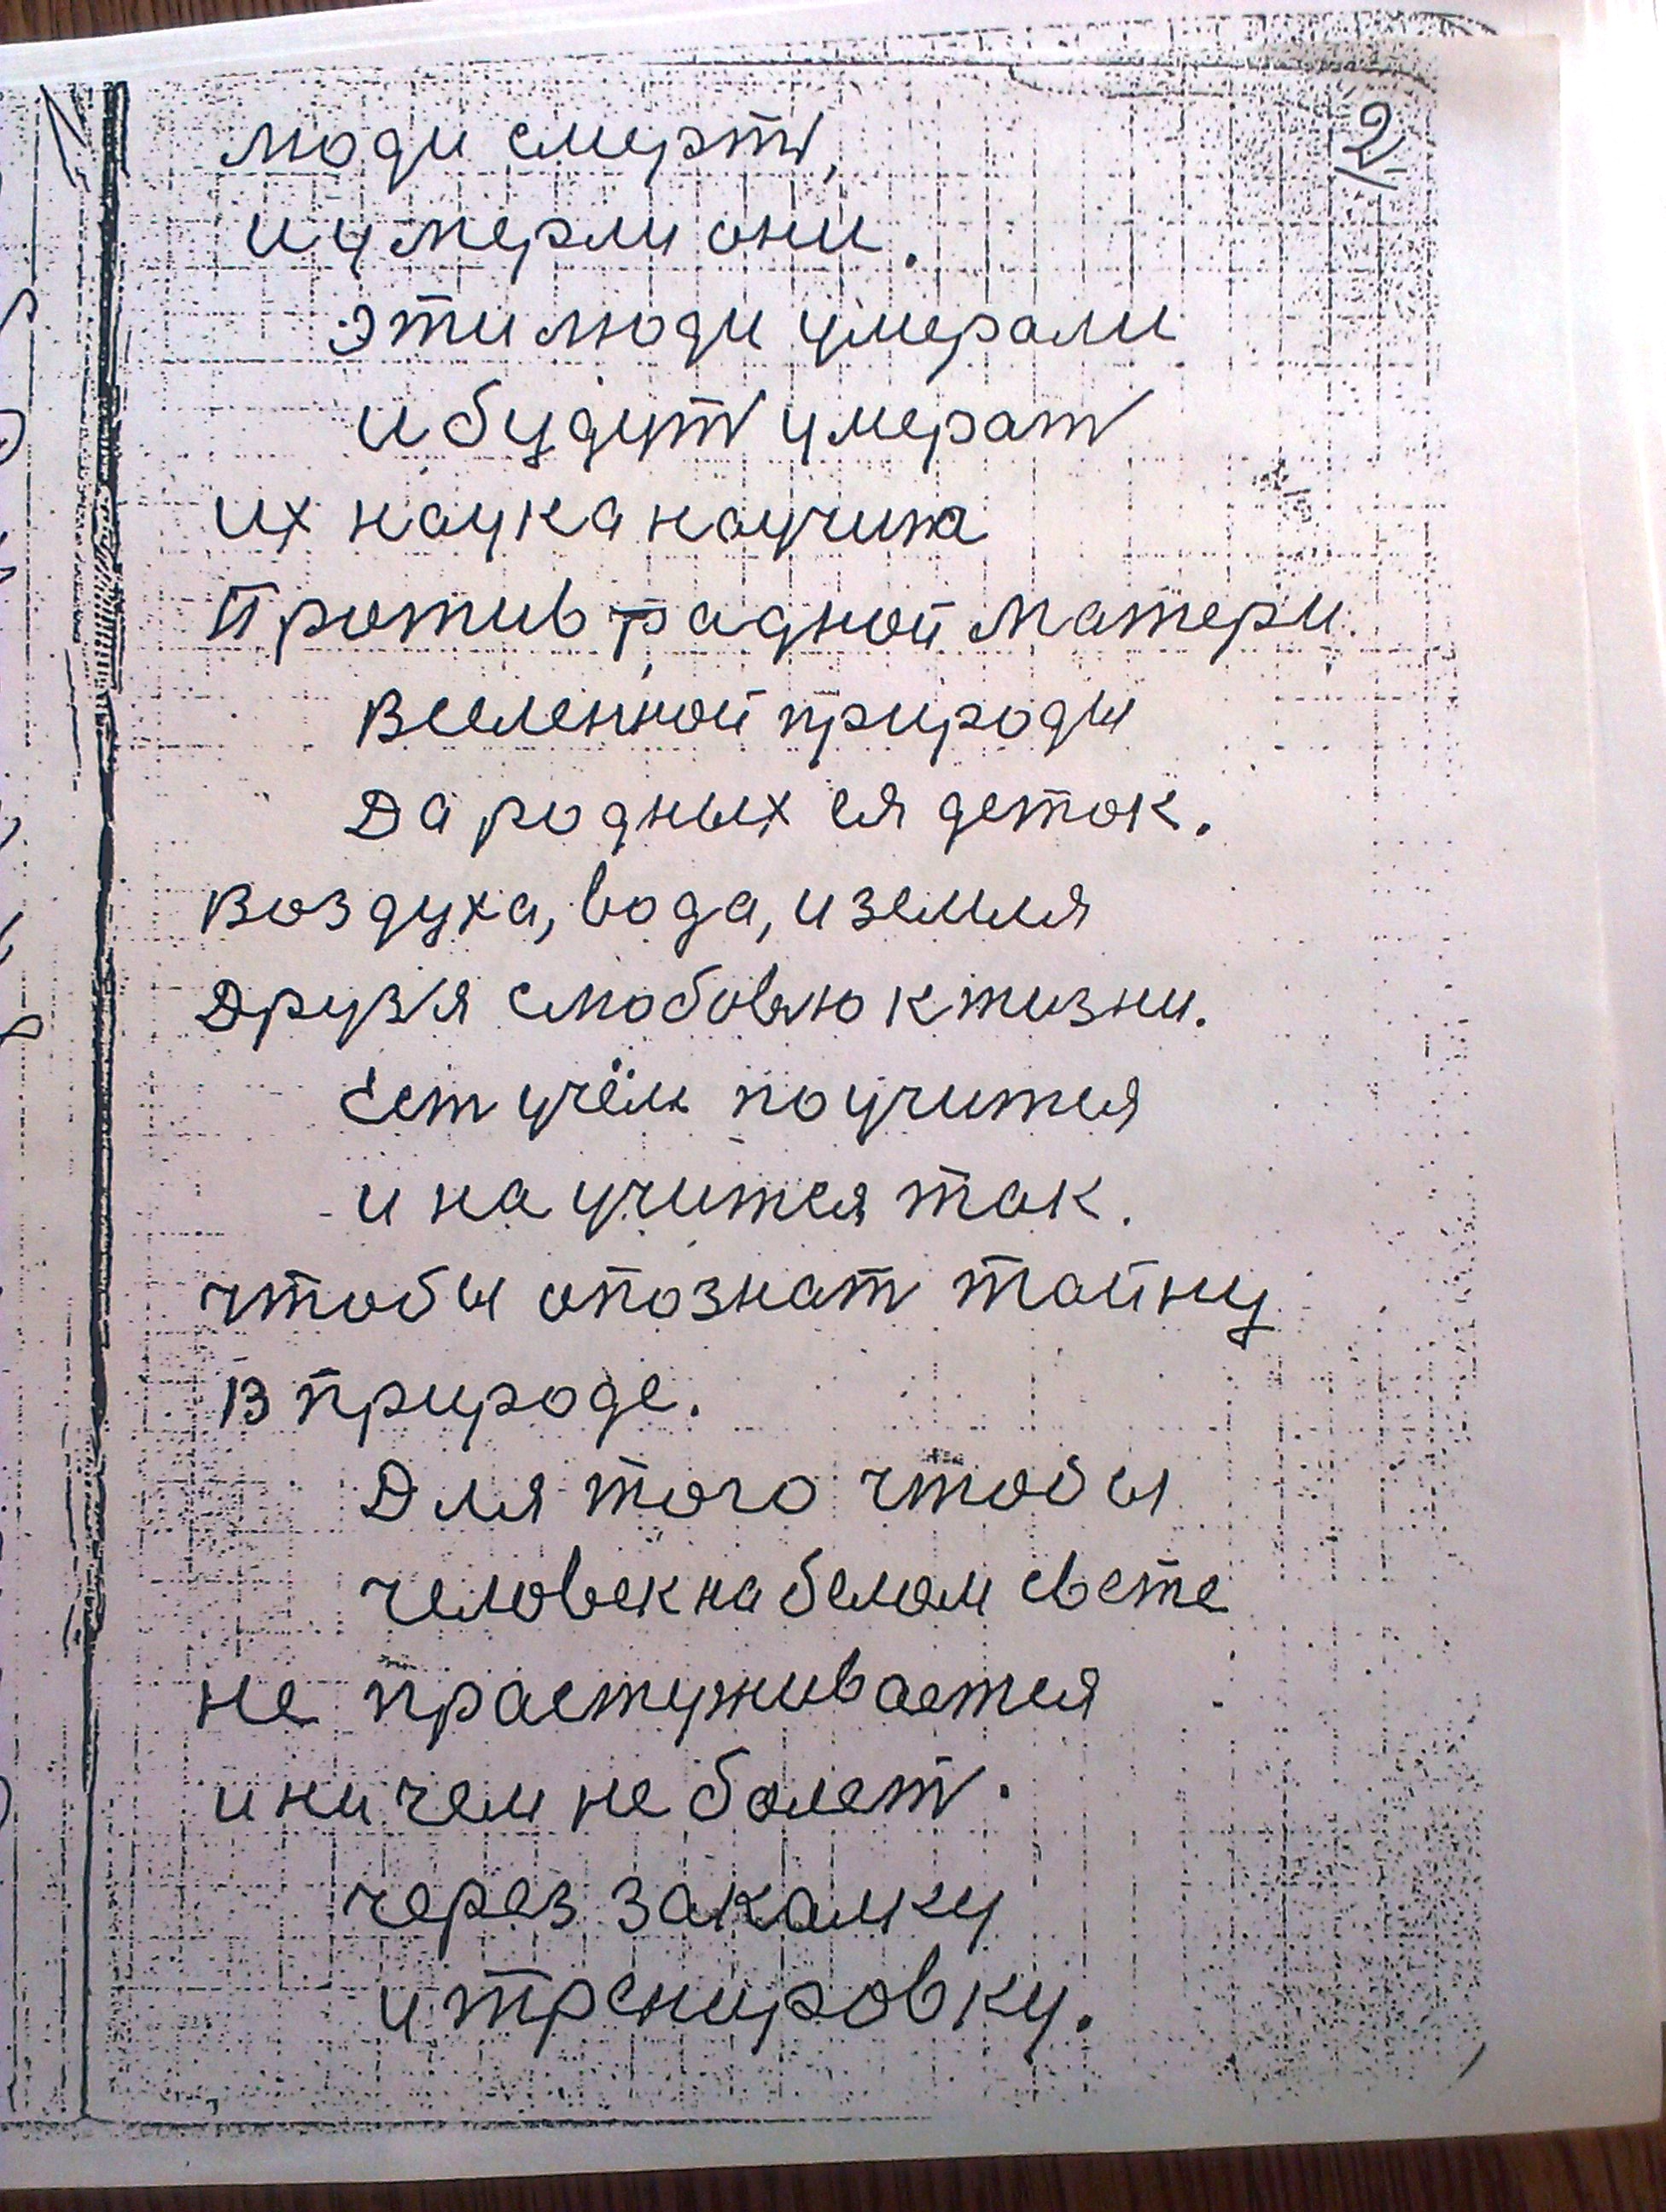 2
люди смерт,
и умерли они.
эти люди умерали
и будут умерат
их наука научила
Против радной матери.
вселенной природы
Да родных ея деток.
воздуха, вода, и земля
Друзя слюбовлю к жизни.
Ест учёлх поучится
и на учится так.
чтобы опознат тайну
в природе.
Для того чтобы
человек на белом свете
не прастуживается
и ни чем не болет.
через закалку
и тренировку.